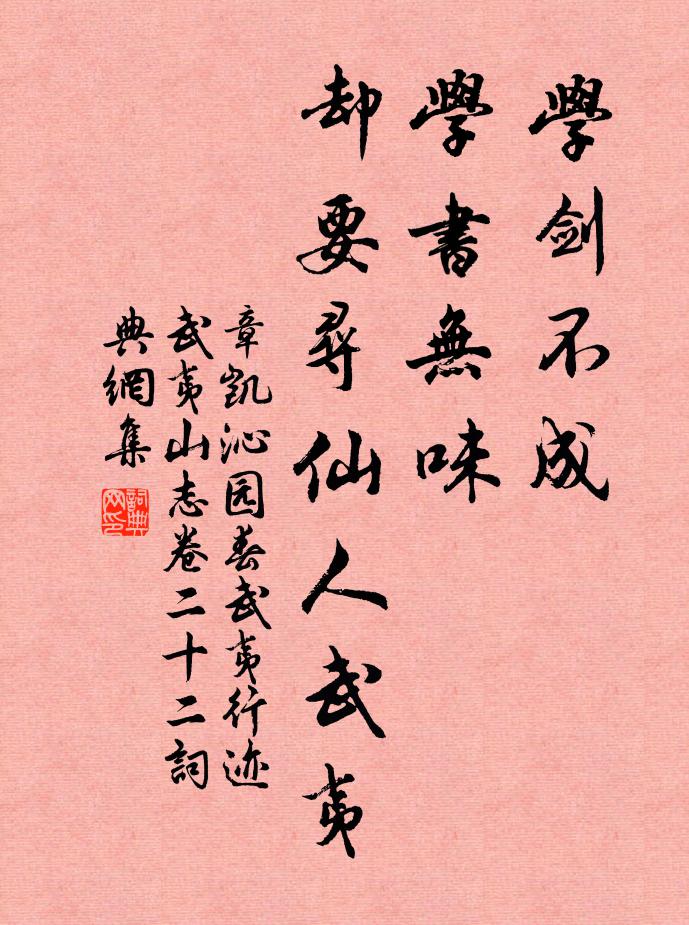 學剑不成
學書無味
却要尋仙人武夷
章凯沁园春武夷行迹
武夷山志卷二十二詞
典網集
詞典
网印